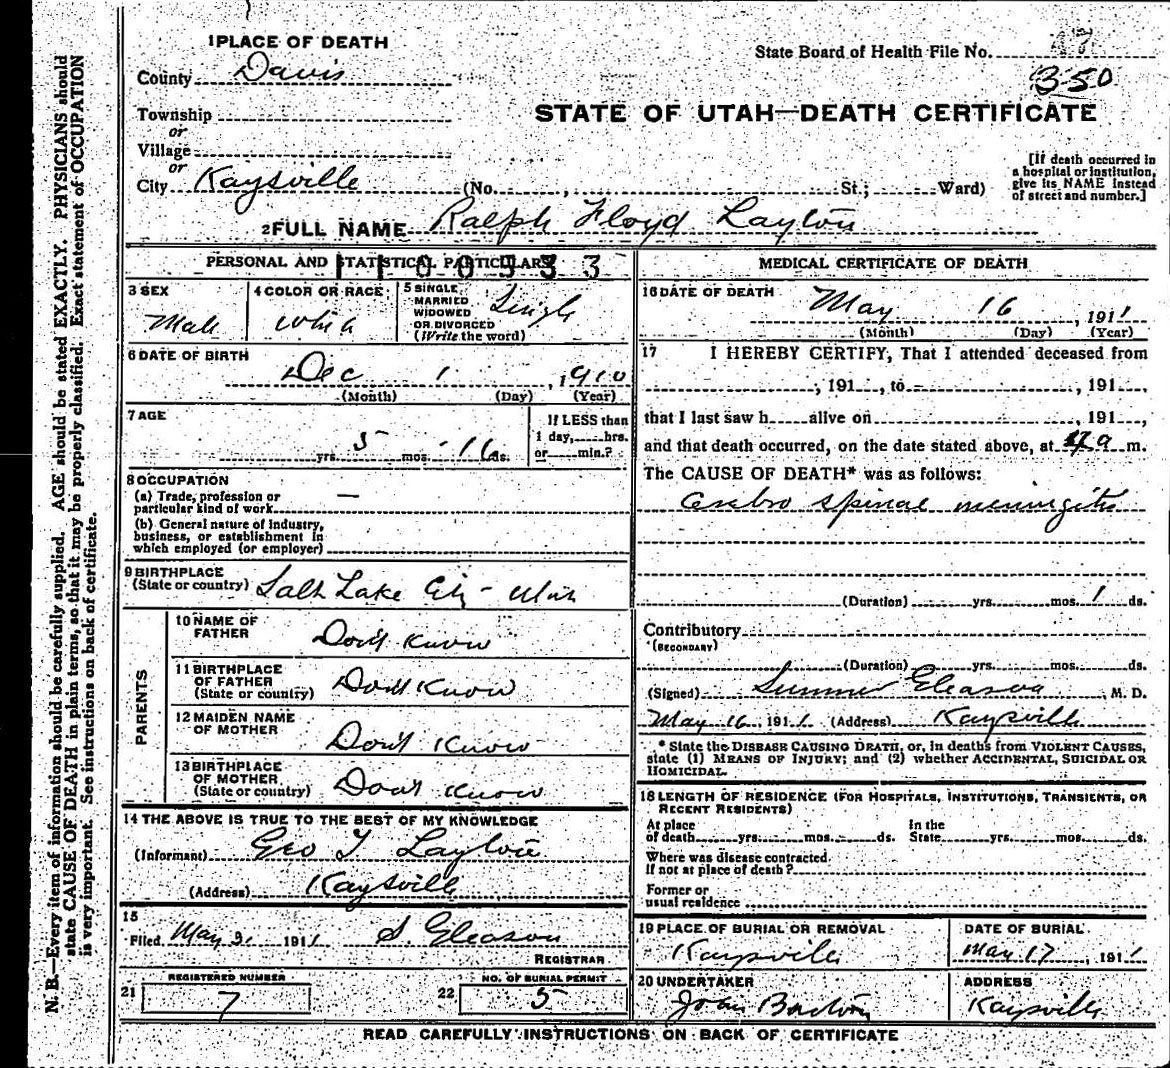 1 PLACE OF DEATH
County Davis
Township
or
Village
or
City Kaysville (No. , St.; Ward)
State Board of Health File No.
350
STATE OF UTAH—DEATH CERTIFICATE
[If death occurred in
a hospital or institution,
give its NAME instead
of street and number.]
2 FULL NAME Ralph Floyd Layton
PERSONAL AND STATISTICAL PARTICULARS
3 SEX
Male
4 COLOR OR RACE
White
5 SINGLE
MARRIED
WIDOWED
OR DIVORCED
(Write the word)
Single
6 DATE OF BIRTH
Dec 1, 1910
(Month) (Day) (Year)
7 AGE
yrs. 5 mos. 16 ds.
If LESS than
1 day, hrs.
or min.?
8 OCCUPATION
(a) Trade, profession or
particular kind of work —
(b) General nature of industry,
business, or establishment in
which employed (or employer)
9 BIRTHPLACE
(State or country) Salt Lake City - Utah
PARENTS
10 NAME OF
FATHER
Don't Know
11 BIRTHPLACE
OF FATHER
(State or country) Don't Know
12 MAIDEN NAME
OF MOTHER
Don't Know
13 BIRTHPLACE
OF MOTHER
(State or country) Don't Know
14 THE ABOVE IS TRUE TO THE BEST OF MY KNOWLEDGE
(Informant) Geo Layton
(Address) Kaysville
15
Filed May 1911 S. Gleason
REGISTRAR
REGISTERED NUMBER
21 7
NO. OF BURIAL PERMIT
22 5
MEDICAL CERTIFICATE OF DEATH
16 DATE OF DEATH
May 16, 1911
(Month) (Day) (Year)
17 I HEREBY CERTIFY, That I attended deceased from
, 191 , to , 191 ,
that I last saw h alive on , 191 ,
and that death occurred, on the date stated above, at a m.
The CAUSE OF DEATH* was as follows:
Cerebro spinal meningitis
(Duration) yrs. mos. 1 ds.
Contributory
(SECONDARY)
(Duration) yrs. mos. ds.
(Signed) Sumner Gleason, M. D.
May 16, 1911 (Address) Kaysville
* State the DISEASE CAUSING DEATH, or, in deaths from VIOLENT CAUSES,
state (1) MEANS OF INJURY; and (2) whether ACCIDENTAL, SUICIDAL OR
HOMICIDAL.
18 LENGTH OF RESIDENCE (FOR HOSPITALS, INSTITUTIONS, TRANSIENTS, OR
RECENT RESIDENTS)
At place
of death yrs. mos. ds.
In the
State yrs. mos. ds.
Where was disease contracted
If not at place of death?
Former or
usual residence
19 PLACE OF BURIAL OR REMOVAL
Kaysville
DATE OF BURIAL
May 17, 1911
20 UNDERTAKER
John Barton
ADDRESS
Kaysville
READ CAREFULLY INSTRUCTIONS ON BACK OF CERTIFICATE
N. B.—Every item of information should be carefully supplied. AGE should be stated EXACTLY. PHYSICIANS should
state CAUSE OF DEATH in plain terms, so that it may be properly classified. Exact statement of OCCUPATION
is very important. See instructions on back of certificate.